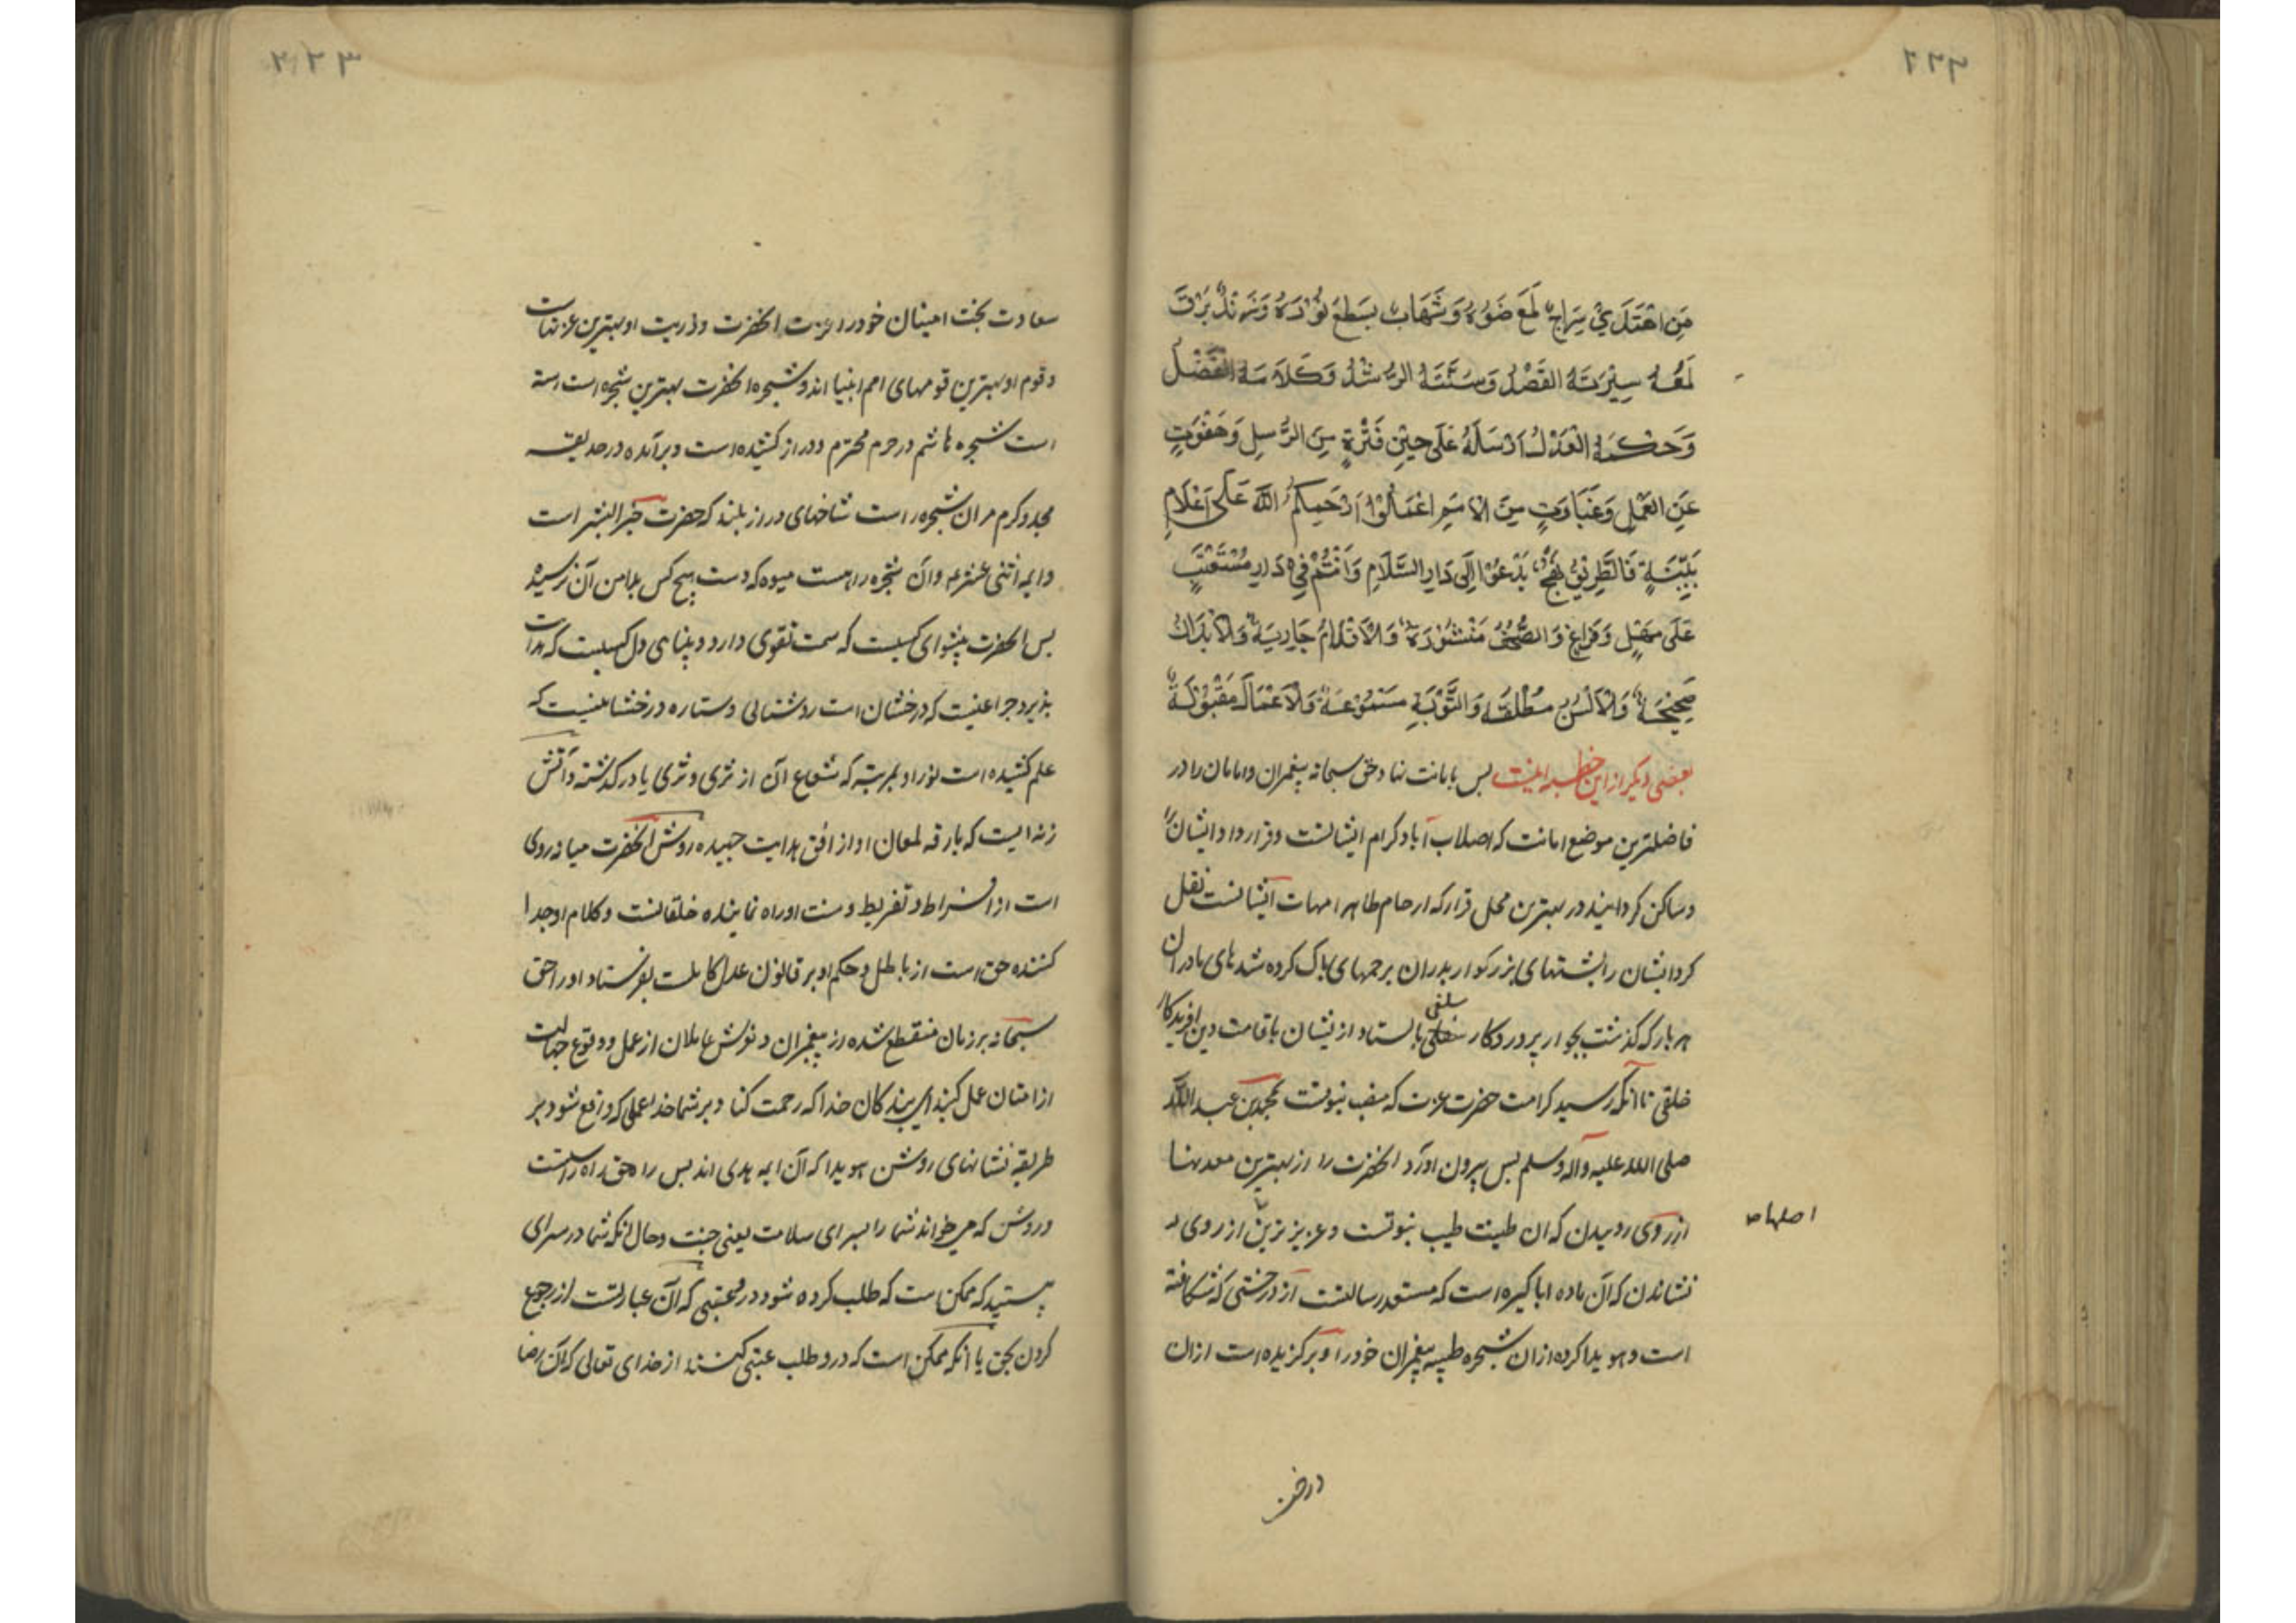 ۲۲۲
مَنِ اهْتَدَىٰ سِرَاجٌ لَمَعَ ضَوْءُهُ وَشَهَابٌ سَطَعَ نُوْرُهُ وَزَنْدٌ بَرَقَ
لَمْعُهُ سِيْرَتُهُ القَصْدُ وَسُنَّتُهُ الرُّشْدُ وَكَلَامُهُ الْفَصْلُ
وَحُكْمُهُ الْعَدْلُ اَرْسَلَهُ عَلَى حِيْنِ فَتْرَةٍ مِنَ الرُّسُلِ وَهَفْوَةٍ
عَنِ العَمَلِ وَغَبَاوَةٍ مِنَ الاُمَمِ اعْمَلُوْا رَحِمَكُمُ اللّٰهُ عَلَى اَعْلَامٍ
بَيِّنَةٍ فَالطَّرِيْقُ نَهْجٌ يَدْعُوْا اِلَى دَارِ السَّلَامِ وَاَنْتُمْ فِيْ دَارِ مُسْتَعْتَبٍ
عَلَى مَهَلٍ وَفَرَاغٍ وَالصُّحُفُ مَنْشُوْرَةٌ وَالاَقْلَامُ جَارِيَةٌ وَالاَبْدَانُ
صَحِيْحَةٌ وَالاَلْسُنُ مُطْلَقَةٌ وَالتَّوْبَةُ مَسْمُوْعَةٌ وَالاَعْمَالُ مَقْبُوْلَةٌ
بعضى ديكر از اين خطبه اينست بس بامانت نهاد حق سبحانه پيغمبران وامامان را در
فاضلترين موضع امانت كه اصلاب آباء كرام ايشانست وقرار داد ايشانرا
وساكن كردانيد در بهترين محل قرار كه ارحام طاهر امهات ايشانست نقل
كرد ايشان را پشتهاى بزركوار پدران برحمهاى پاك كرده شدهاى مادران
هر بار كه كذشت بجوار پروردكار سلفى بايستاد از يشان باقامت دين افريدكار
خلفى تا آنكه رسيد كرامت حضرت عزت كه منصب نبوتست بمحمد بن عبد الله
صلى الله عليه وآله وسلم بس بيرون اورد انحضرت را از بهترين معدنها
از روى روييدن كه ان طينت طيب نبوتست وعزيزترين از روى
اصلهاء
نشاندن كه آن ماده اباكيره است كه مستعد رسالتست از درختى كه شكافته
است وهويدا كرده از ان شجره طيبه پيغمبران خود را وبركزيده است ازان
درخت
۲۲۳
سعادت بخت امينان خود را عترت انحضرت وذريت او بهترين عترتهاست
وقوم او بهترين قومهاى امم انبيا اند وشجره انحضرت بهترين شجره است رسته
است شجره هاشم در حرم محترم ودراز كشيده است وبرآمده در حديقه
مجد وكرم مران شجره راست شاخهاى دراز بلند كه حضرت خير البشر است
وايمه اثنى عشرعم وآن شجره راهست ميوه كه دست هيچ كس بدامن آن نرسيده
بس انحضرت پيشواى كسيست كه سمت تقوى دارد وبيناى دل كسيست كه هدايت
پذيرد چراغيست كه درخشان است روشنائى وستاره درخشانيست كه
علم كشيده است نور او بمرتبه كه شعاع آن از ثرى وثريا دركذشته وآتش
زنه ايست كه بارقه لمعان او از افق هدايت جهيده روش انحضرت ميانه روى
است از افراط وتفريط وسنت او راه نماينده خلقانست وكلام او جدا
كننده حق است از باطل وحكم او بر قانون عدل كاملست بفرستاد او را حق
سبحانه برزمان منقطع شده از پيغمبران ولغزش عاملان از عمل ووقوع جهالت
از امتان عمل كنيد اى بندكان خدا كه رحمت كناد برشما خدا عملى كه واقع شود بر
طريقه نشانهاى روشن هويدا كه آن ايمه هدى اند بس راه حق راه راست
وروشن كه ميخواند شما را بسراى سلامت يعنى جنت وحال انكه شما در سراى
هستيد كه ممكن است كه طلب كرده شود در وعتبى كه آن عبارتست از رجوع
كردن بحق يا آنكه ممكن است كه درو طلب عتبى كنند از خداى تعالى كه آن رضا